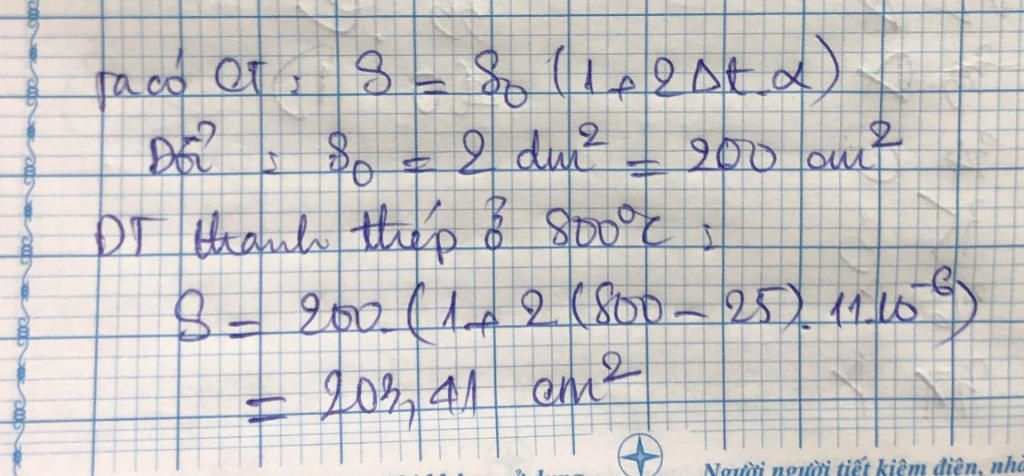 Ta có CT : S = S₀ (1 + 2Δt.α)
Đổi : S₀ = 2 dm² = 200 cm²
DT thanh thép ở 800°C :
S = 200.(1 + 2(800 - 25).11.10⁻⁶)
= 203,41 cm²
Người người tiết kiệm điện, nhà